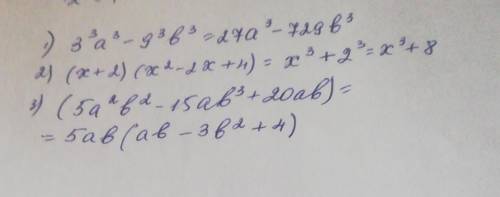 1) 3³a³ - 9³b³ = 27a³ - 729b³
2) (x+2) (x² - 2x + 4) = x³ + 2³ = x³ + 8
3) (5a²b² - 15ab³ + 20ab) =
= 5ab (ab - 3b² + 4)